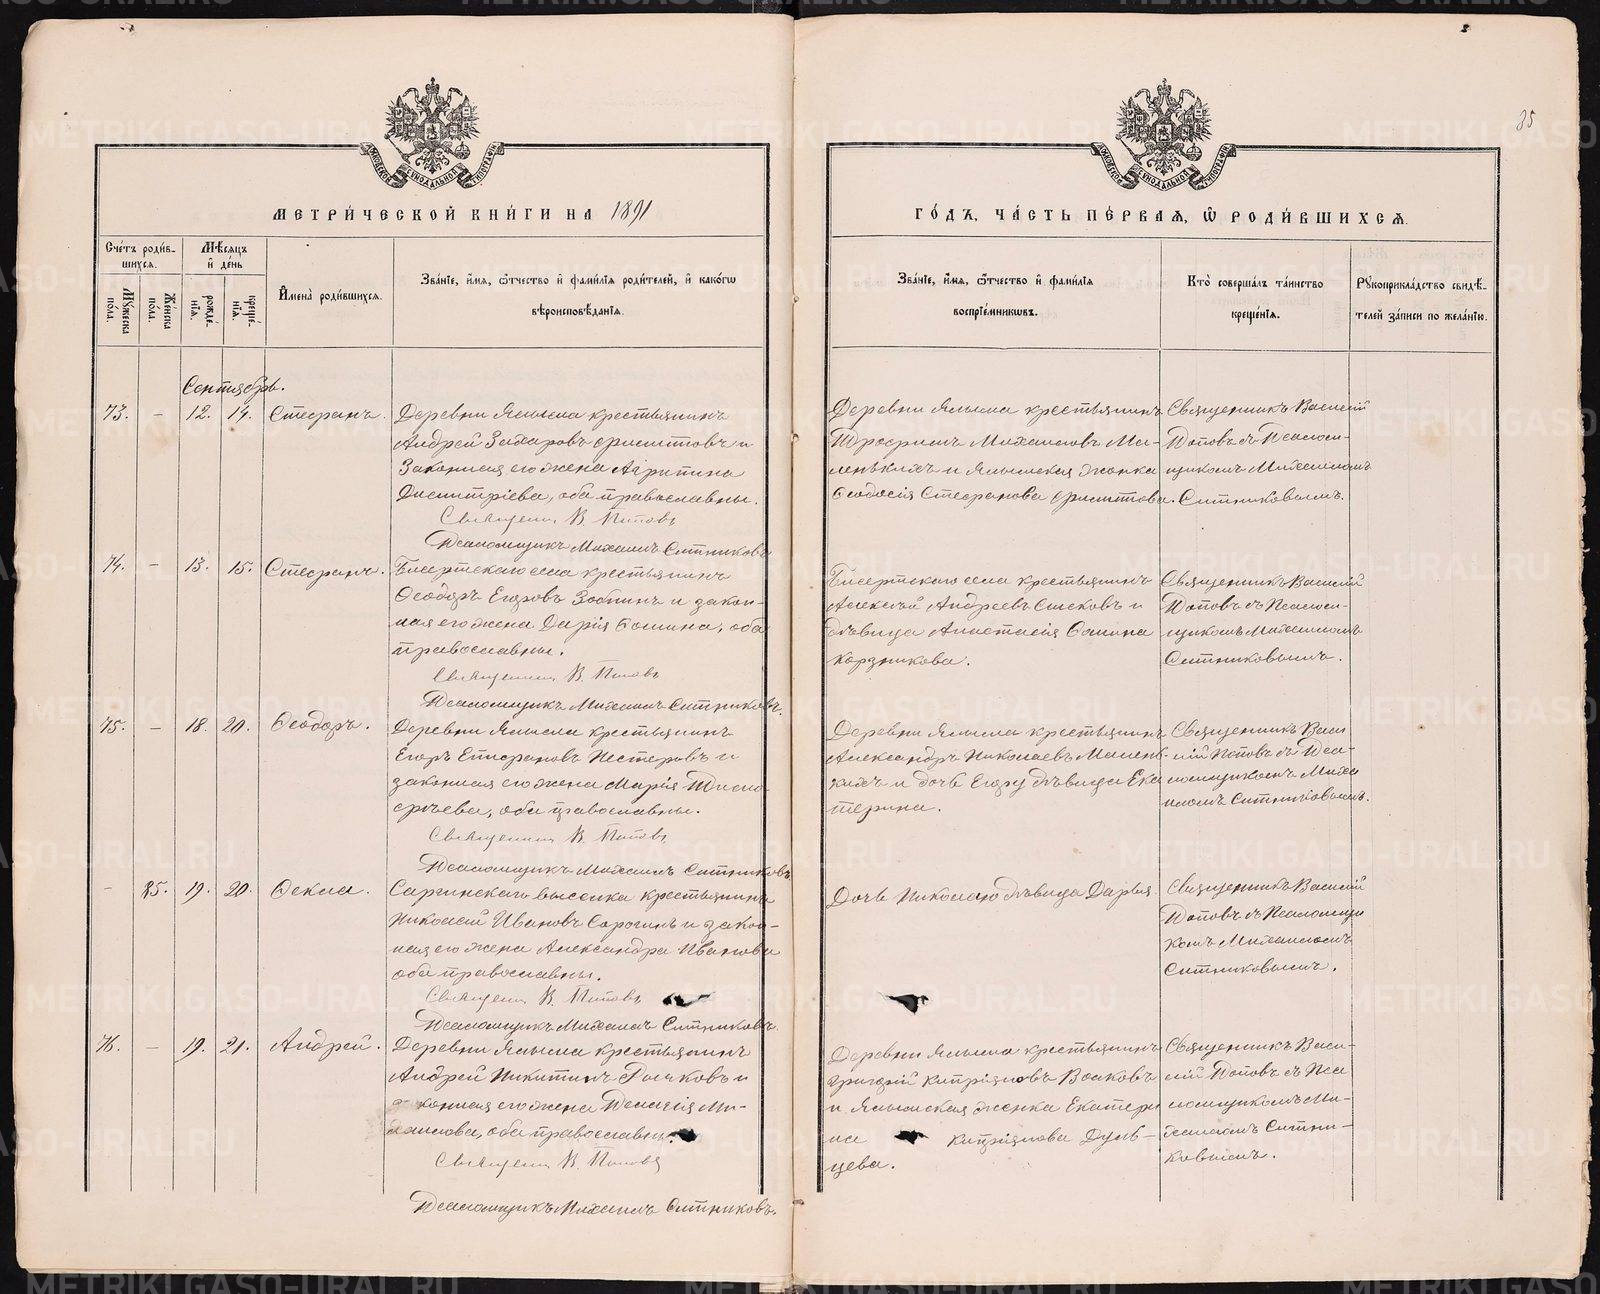 35
МЕТРИ́ЧЕСКОЙ КНИ́ГИ НА 1891
ГО́ДЪ, ЧА́СТЬ ПЕ́РВАЯ, Ѡ҆ РОДИ́ВШИХСЯ.
Сче́тъ роди́в-
шихся.
Мꙋжеска по́ла.
Же́нска по́ла.
Мѣ́сяцъ и҆ де́нь
рожде́-
нія.
креще́-
нія.
И҆мена̀ роди́вшихся.
Зва́нїе, и҆́мя, ѻ҆́тчество и҆ фами́лїя роди́телей, и҆ како́гѡ
вѣроисповѣ́данїя.
Зва́нїе, и҆́мя, ѻ҆́тчество и҆ фами́лїя
воспрїе́мникѡвъ.
Кто̀ соверша́лъ та́инство
креще́нїя.
Рꙋкоприкла́дство свидѣ́-
телей за́писи по жела́нїю.
Сентябрь.
73. – 12. 14. Стефанъ.
Деревни Ялыма крестьянинъ
Андрей Захаровъ Филиттовъ и
Законная его жена Агрипина
Димитріева, оба православны.
Священник В. Поповъ
Псаломщикъ Михаилъ Ситниковъ
Деревни Ялыма крестьянинъ
Трофимъ Михаиловъ Ма-
ленькихъ и Ялымская женка
Ѳеодосія Стефанова
Священникъ Василій
Поповъ съ Псалом-
щикомъ Михаиломъ
Ситниковымъ.
74. – 13. 15. Стефанъ.
Бисертскаго села крестьянинъ
Ѳеодоръ Егоровъ Зобнинъ и закон-
ная его жена Дарія Ѳомина, оба
православны.
Священник В. Поповъ
Псаломщикъ Михаилъ Ситниковъ.
Бисертскаго села крестьянинъ
Алексѣй Андреевъ и
дѣвица Анастасія Ѳомина
Священникъ Василій
Поповъ съ Псалом-
щикомъ Михаиломъ
Ситниковымъ.
75. – 18. 20. Ѳеодоръ.
Деревни Ялыма крестьянинъ
Егоръ Епифановъ Нестеровъ и
законная его жена Марія Тимо-
фѣева, оба православны.
Священник В. Поповъ
Псаломщикъ Михаилъ Ситниковъ
Деревни Ялыма крестьянинъ
Александръ Николаевъ Малень-
кихъ и дочь Егору дѣвица Ека
терина.
Священникъ Васи
лій Поповъ съ Пса-
ломщикомъ Миха
иломъ Ситниковымъ.
– 35. 19. 20. Ѳекла.
Саргинскаго выселка крестьянинъ
Николай Ивановъ Сорогинъ и закон-
ная его жена Александра Иванова
оба православны.
Священник В. Поповъ
Псаломщикъ Михаилъ Ситниковъ.
Дочь Николаю дѣвица Дарья
Священникъ Василій
Поповъ съ Псаломщи
комъ Михаиломъ
Ситниковымъ.
76. – 19. 21. Андрей.
Деревни Ялыма крестьянинъ
Андрей Никитинъ Рычковъ и
законная его жена Пелагія Ми-
хаилова, оба православны.
Священник В. Поповъ
Псаломщикъ Михаилъ Ситниковъ.
Деревни Ялыма крестьянинъ
Григорій Кипріяновъ Волковъ
и Ялымская женка Екатери
на Кипріянова Дуль-
цева.
Священникъ Васи-
лій Поповъ съ Пса
ломщикомъ Ми-
хаиломъ Ситни-
ковымъ.
METRIKI.GASO-URAL.RU